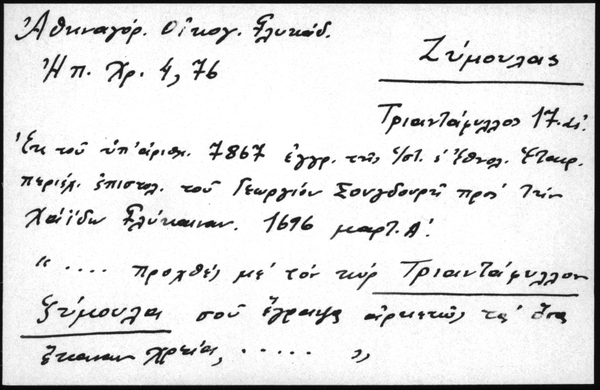 Ἀθηναγόρ. Οἶκογ. Γλυκάδ.
Ἠπ. Χρ. 4, 76
Ζύμουλας
Τριαντάφυλλος 17. αἰ.
Ἐκ τοῦ ὑπ' ἀριθμ. 7867 ἐγγρ. τῆς Ἱστ. & Ἐθνολ. Ἑταιρ.
περιέχ. ἐπιστολ. τοῦ Γεωργίου Σουγδουρῆ πρὸς τὴν
Χάϊδω Γλύκαιναν. 1696 μαρτ. Α'.
" .... προχθὲς μὲ τὸν κὺρ Τριαντάφυλλον
Ζύμουλα σοῦ ἔγραψα ἀρκετῶς τὰ ὅσα
ἔκαναν χρεία, ..... "